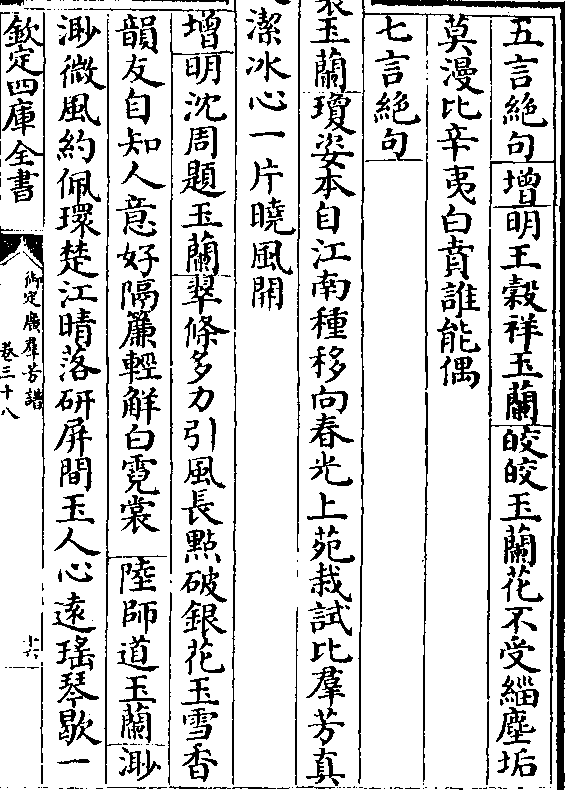 五言絶句增明王穀祥玉蘭皎皎玉蘭花不受緇塵垢
莫漫比辛夷白賁誰能偶
七言絶句
玉蘭瓊姿本自江南種移向春光上苑栽試比羣芳真
潔冰心一片曉風開
增明沈周題玉蘭翠條多力引風長點破銀花玉雪香
韻友自知人意好隔簾輕解白霓裳 陸師道玉蘭渺
渺微風約佩環楚江晴落研屏間玉人心遠瑤琴歇一
欽定四庫全書
御定廣羣芳譜
卷三十八
十六